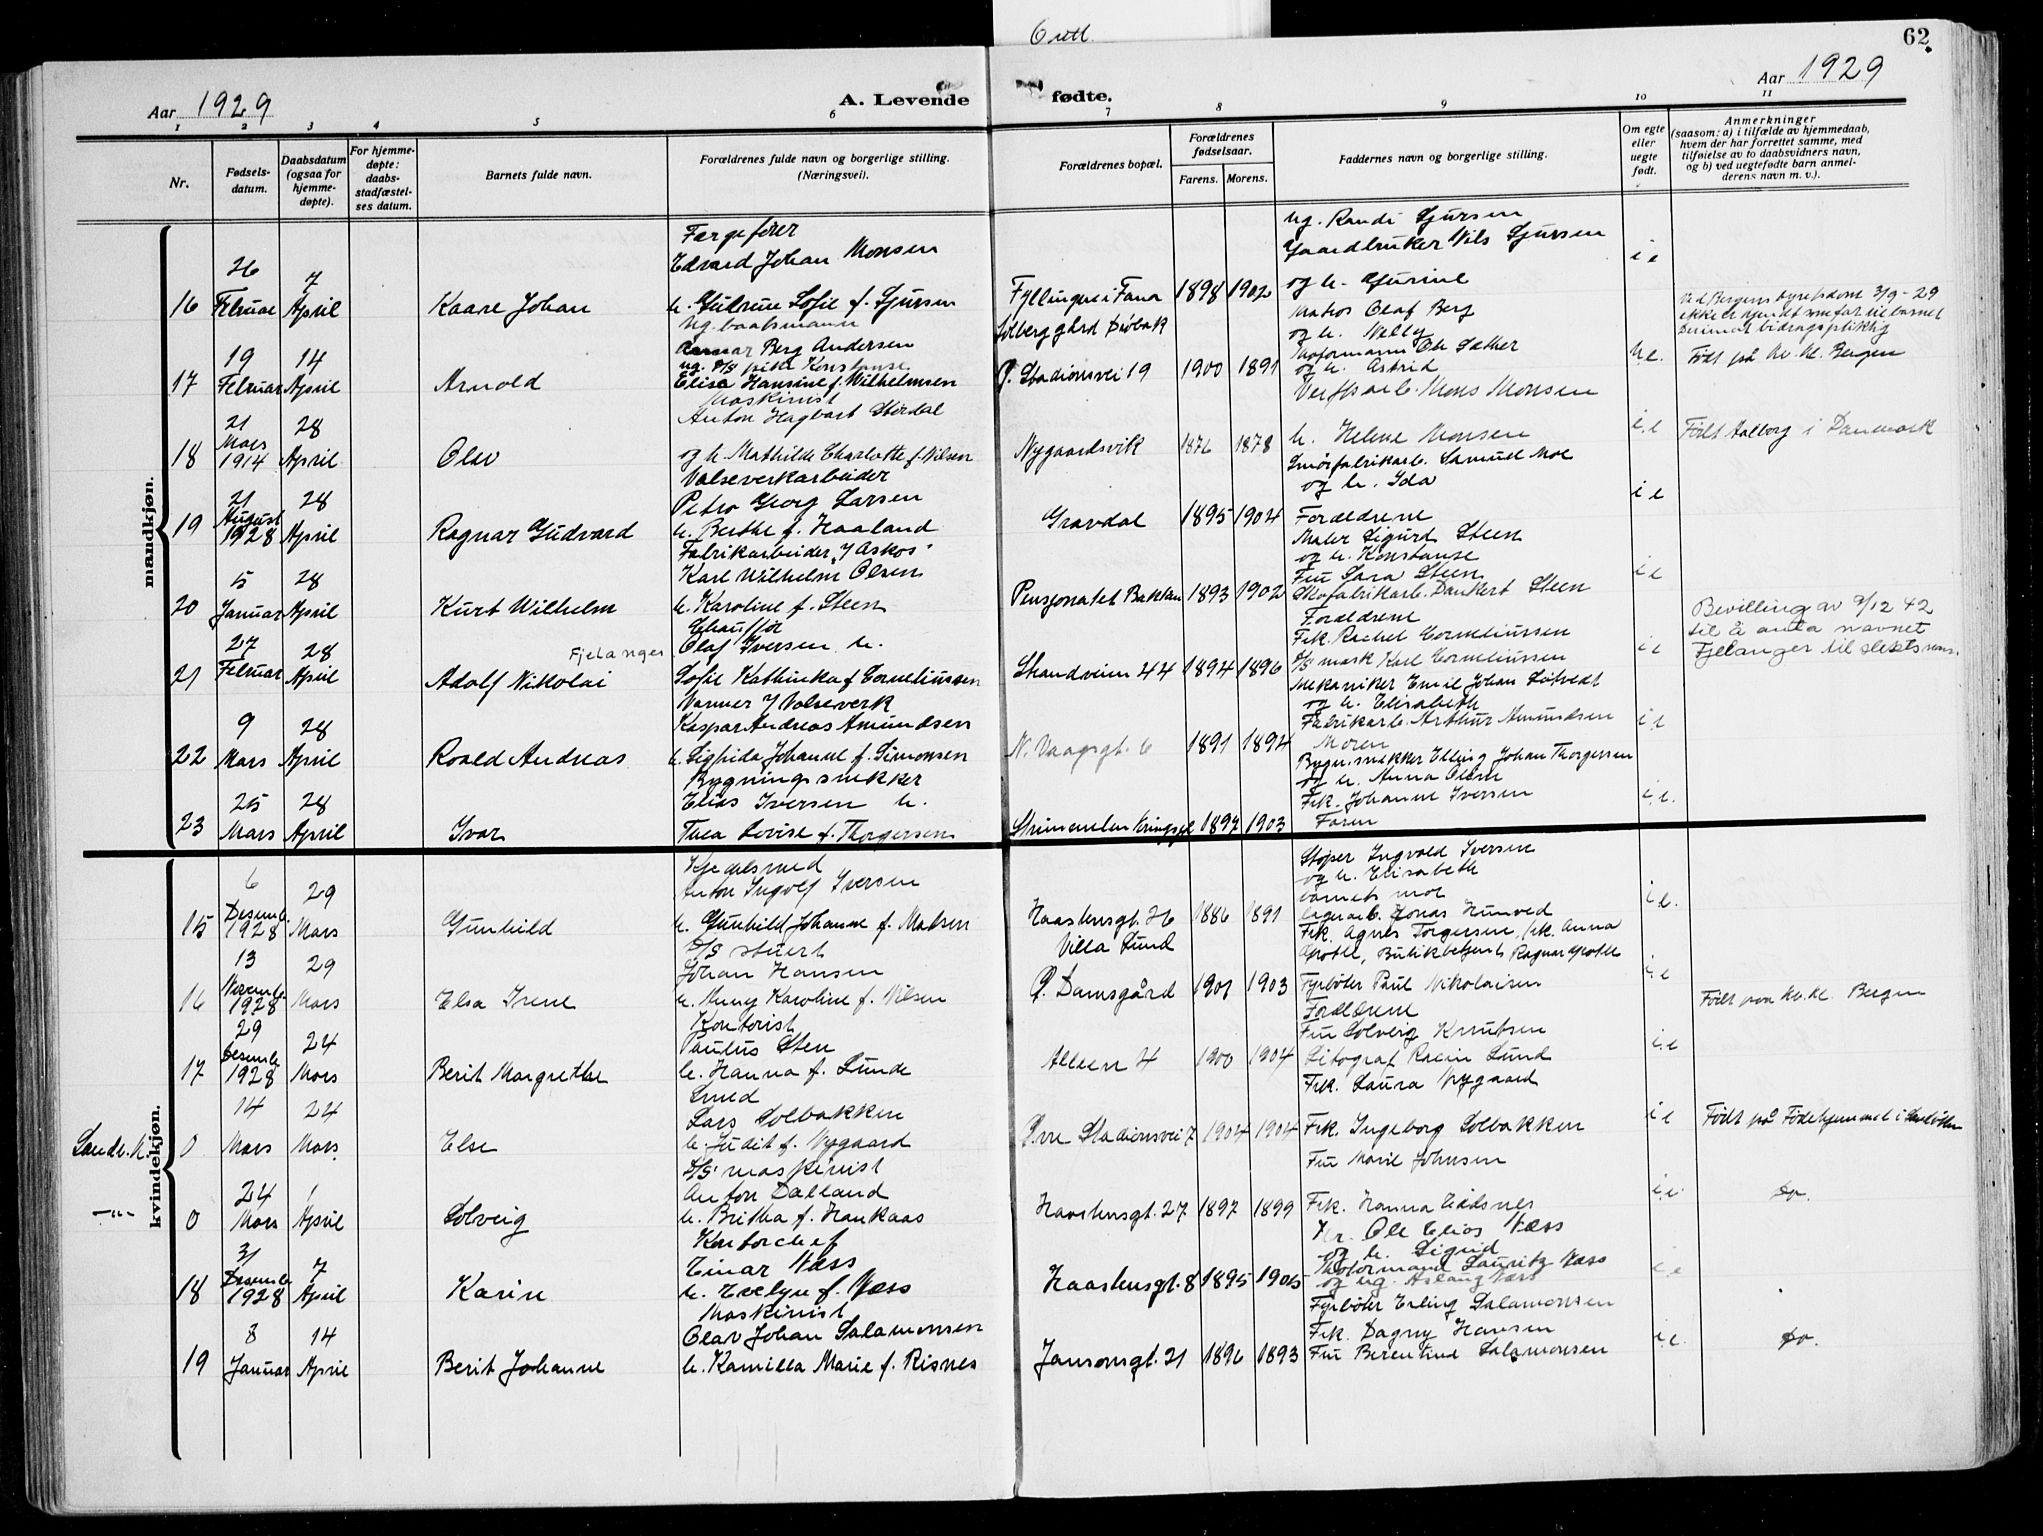 6 utt.
62
Aar 1929
A. Levende
fødte.
Aar 1929
1 2 3 4 5 6 7 8 9 10 11
Nr.
Fødsels-
datum.
Daabsdatum
(ogsaa for
hjemme-
døpte).
For hjemme-
døpte:
daabs-
stadfæstel-
ses datum.
Barnets fulde navn.
Forældrenes fulde navn og borgerlige stilling.
(Næringsvei).
Forældrenes bopæl.
Forældrenes
fødselsaar.
Farens. Morens.
Faddernes navn og borgerlige stilling.
Om egte
eller
uegte
født.
Anmerkninger
(saasom: a) i tilfælde av hjemmedaab,
hvem der har forrettet samme, med
tilføielse av to daabsvidners navn,
og b) ved uegtefødte barn anmel-
derens navn m. v.).
mandkjøn.
16
26
Februar
7
April
Kaare Johan
Færgefører
Edvard Johan Monsen
h. Gudrun Sofie f. Sjursen
Fyllingen i Fana
1898 1902
Ug. Randi Sjursen
Gaardbruker Nils Sjursen
og h. Gjurine
i e
17
19
Februar
14
April
Arnold
ug. baatsmann
Berg Andersen
ug. D/S pike Konstanse
Elise Hansine f. Wilhelmsen
Solberg gård Drøbak
P. Stadionsvei 19
1900 1891
Matros Olaf Berg
og h. Nelly
Skoformann Ole Sæther
og h. Astrid
u.e.
Ved Bergens byretsdom 3/9-29
ikke er kjendt som far til barnet
derimot bidragspliktig
Født på Kv. kl. Bergen
18
21
Mars
1914
28
April
Olav
Maskinist
Anton Hagbart Stördal
og h. Mathilde Charlotte f. Nilsen
Nygaardsvik
1876 1878
Verftsarb. Mons Monsen
h. Helene Monsen
Smörfabrikarb. Samuel Moe
og h. Ida
i.e
Født Aalborg i Danmark
19
21
August
1928
28
April
Ragnar Gudvard
Valseverkarbeider
Petro Georg Larsen
h. Berthe f. Haaland
Gravdal
1895 1904
Forældrene
Maler Sigurd Steen
og h. Konstanse
i e
20
5
Januar
28
April
Kurt Wilhelm
Fabrikarbeider
Karl Wilhelm Olsen
h. Karoline f. Steen
Pensjonatet Bakken
1893 1902
Fru Sara Steen
Skofabrikarb. Dankert Steen
Forældrene
i e
21
27
Februar
28
April
Adolf Nikolai
Fjelanger
Chauffør
Olaf Iversen h.
Sofie Kathinka f Corneliussen
Strandveien 44
1894 1896
Frk. Rachel Corneliussen
Karl Corneliussen
Mekaniker Emil Johan Løtvedt
og h. Elisabeth
i e
Bevilling av 9/12 42
til å anta navnet
Fjelanger til slektsnavn.
22
9
Mars
28
April
Roald Andreas
Varmer / Valseverk
Kaspar Andreas Amundsen
h. Sigfrida Johanne f. Simonsen
N. Vaagsgt. 6
1891 1894
Fabrikarb. Arthur Amundsen
Moren
i e
23
25
Mars
28
April
Ivar
Bygningssnekker
Elias Iversen h.
Thea Lovise f. Thorgersen
1897 1903
Bygn.snekker Elling Johan Thorgersen
og h. Anna Oline
Frk. Johanne Iversen
Faren
i.e.
kvindekjøn.
15
6
Desemb.
1928
29
Mars
Gunhild
Kjedelsmed
Anton Ingolf Iversen
h. Gunhild Johanne f. Madsen
Haastensgt. 26
1886 1891
Støper Ingvald Iversen
og h. Elisabeth
barnets mor
i.e.
16
13
Novemb.
1928
29
Mars
Elsa Irene
D/S stuert
Johan Hansen
h. Nuny Karoline f. Nilsen
Villa Lund
P. Damsgård
1901 1903
Lagerarb. Jonas Hunved
Frk. Agnes Torgersen, frk. Anna
Apothe, Butikbetjent Ragnar Apothe
Fyrbøter Paul Nikolaisen
i e
Født paa kv. kl. Bergen
17
29
Desemb.
1928
24
Mars
Berit Margrethe
Kontorist
Paulus Sten
h. Hanna f. Lunde
Alleen 4
1900 1904
Forældrene
Fru Solveig Knutsen
Litograf Lund
Frk. Laura Nygaard
i.e
Sandv. K.
0
14
Mars
24
Mars
Else
Smed
Lars Solbakken
h. Judit f. Nygaard
Øvre Stadionsvei 7
1904 1904
Frk. Ingeborg Solbakken
Fru Marie Johnsen
i e
Født på Fødehjemmet i Sandviken
—"—
0
24
Mars
1
April
Solveig
D/S maskinist
Anton Dalland
h. Britha f. Haukaas
Haastensgt. 27
1897 1899
Frk. Hanna Eidsnes
i.e
Do.
18
31
Desemb.
1928
7
April
Karin
Kontorchef
Einar Næss
h. Evelyn f. Næss
Haastensgt. 8
1895 1905
Hr. Ole Elias Næss
og h. Sigrid
Skoformann Lauritz Næss
og ug. Aslaug Næss
i e
19
8
Januar
14
April
Berit Johanne
Maskinist
Olav Johan Salamonsen
h. Kamilla Marie f. Risnes
Jansonsgt. 21
1896 1893
Fyrbøter Erling Salamonsen
Frk. Dagny Hansen
Fru Berentine Salamonsen
i.e.
Do.